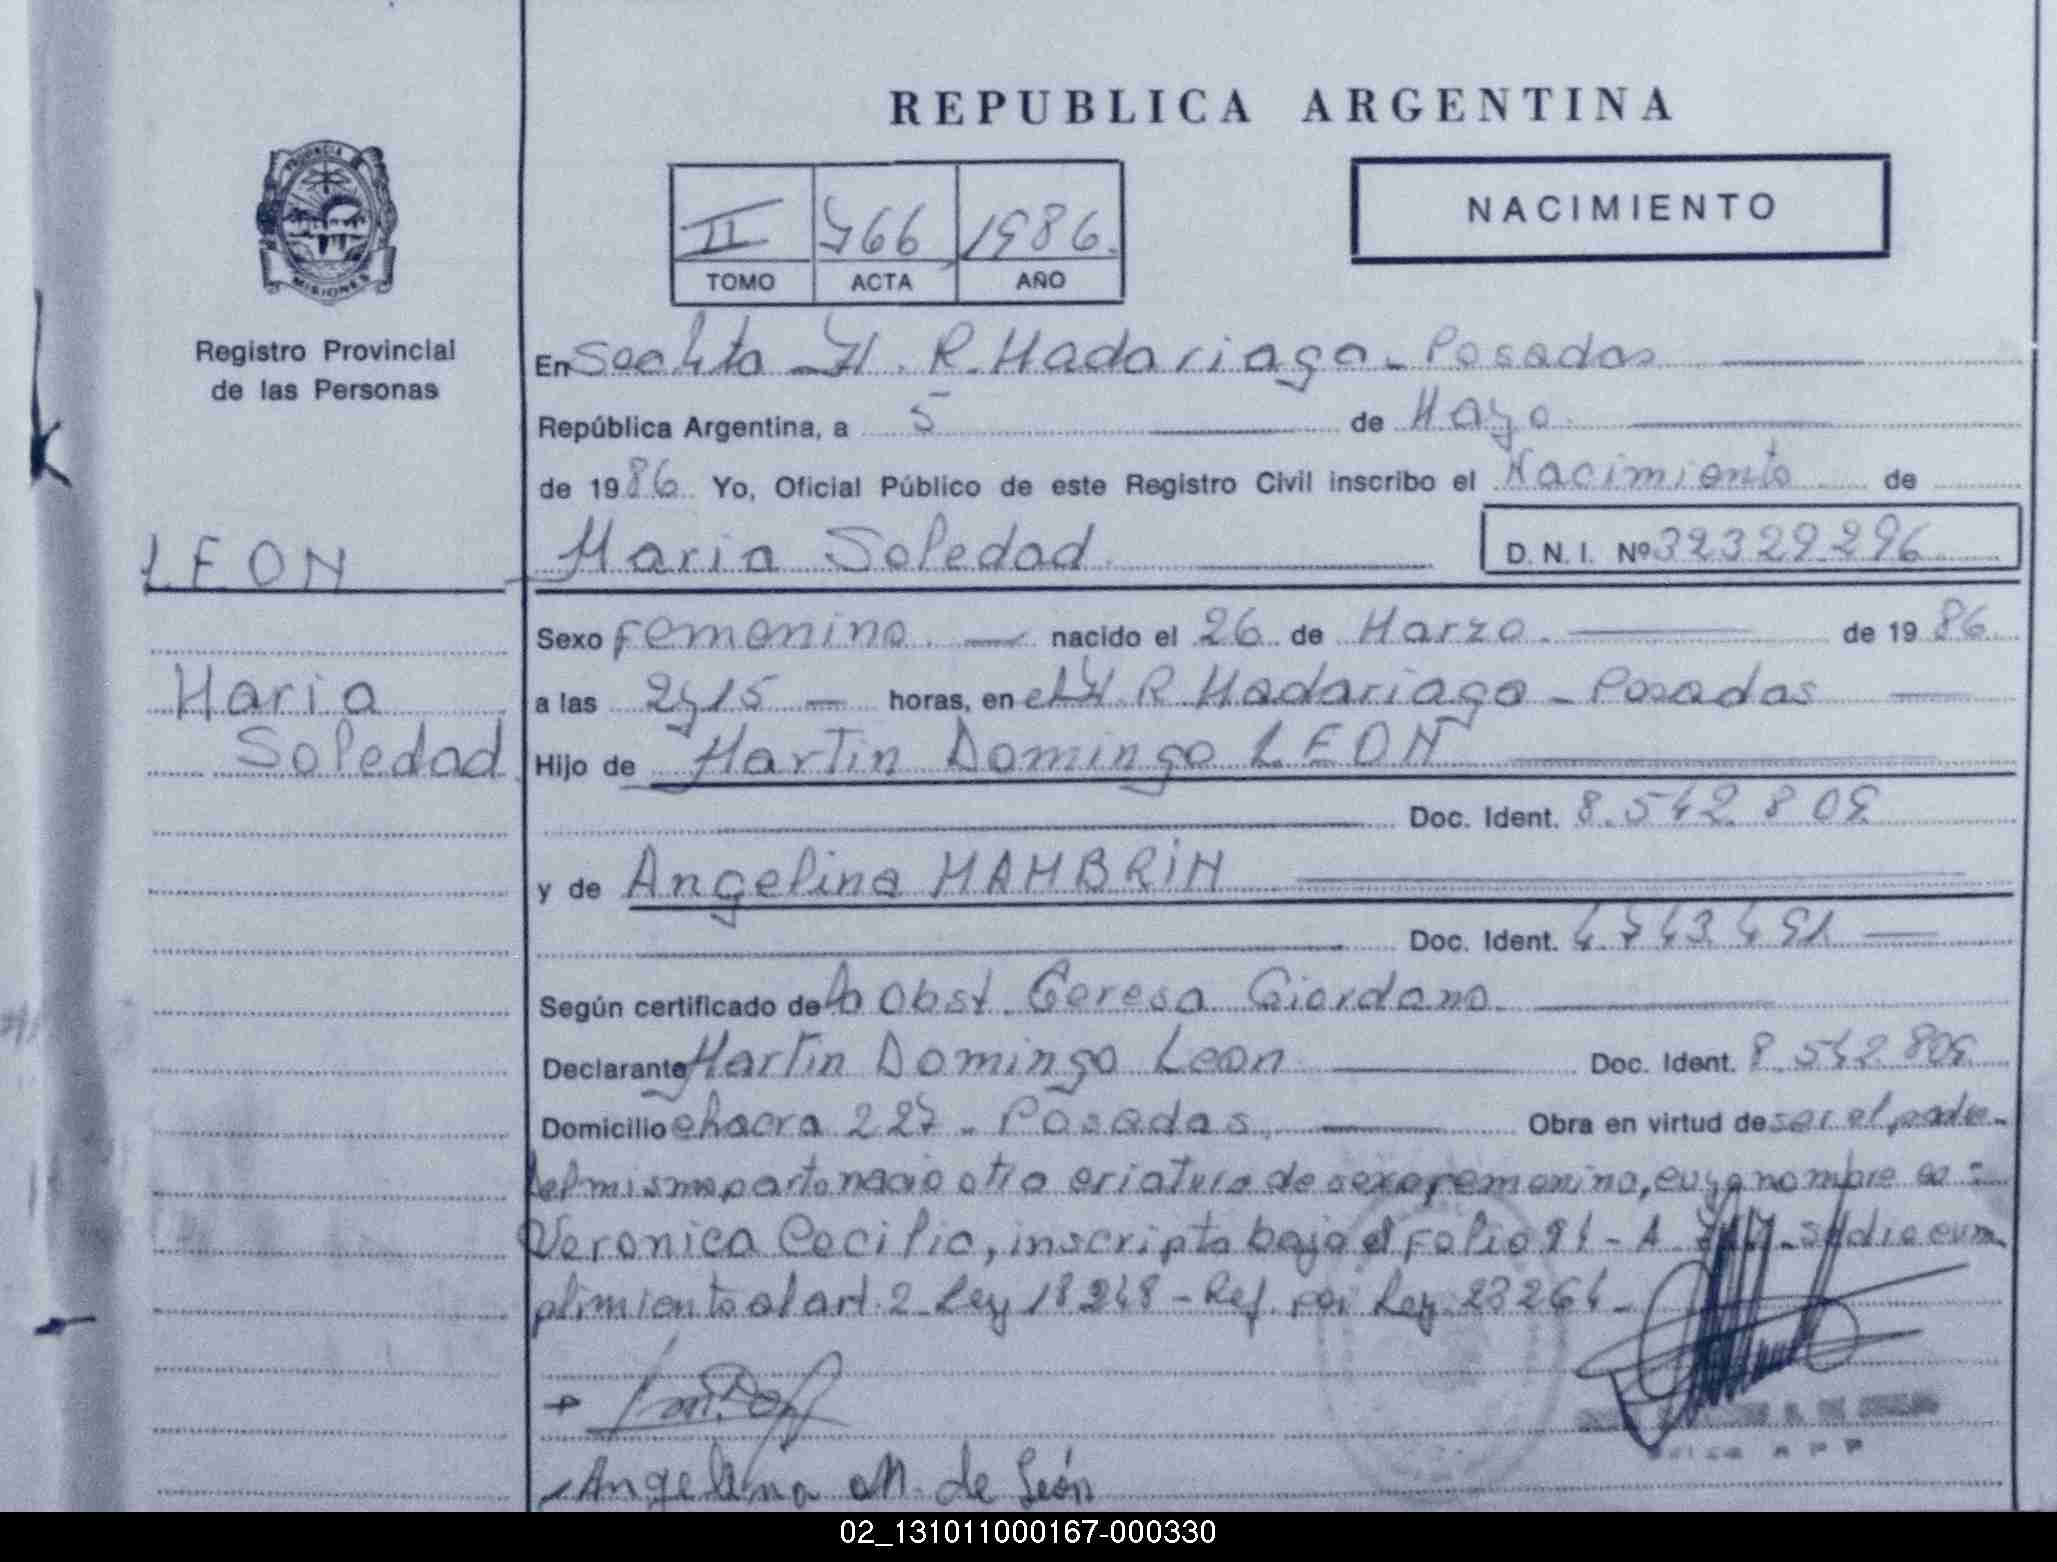 REPUBLICA ARGENTINA
PROVINCIA
MISIONES
Registro Provincial
de las Personas
II 766 1986.
TOMO ACTA AÑO
NACIMIENTO
En H. R. Madariaga - Posadas
República Argentina, a 5 de Mayo
de 1986 Yo, Oficial Público de este Registro Civil inscribo el Nacimiento de
LEON
Maria Soledad D. N. I. Nº 32329296
Sexo Femenino nacido el 26 de Marzo de 1986
Maria
Soledad
a las horas, en el H. R. Madariaga - Posadas
Hijo de Martin Domingo LEON
Doc. Ident. 8.542.809
y de Angelina MAMBRIN
Doc. Ident. 4.743.491
Según certificado de la Obst. Teresa Giordano
Declarante Martin Domingo Leon Doc. Ident. 8.542.809
Domicilio chacra 227 - Posadas. Obra en virtud de ser el padre-
del mismo parto nacio otra criatura de sexo femenino, cuyo nombre es:
Veronica Cecilia, inscripta bajo el Folio 91 - A se dio cum
plimiento al art. 2 Ley 18248 - Ref. por Ley 23264 -
Angelina M. de León
02_131011000167-000330